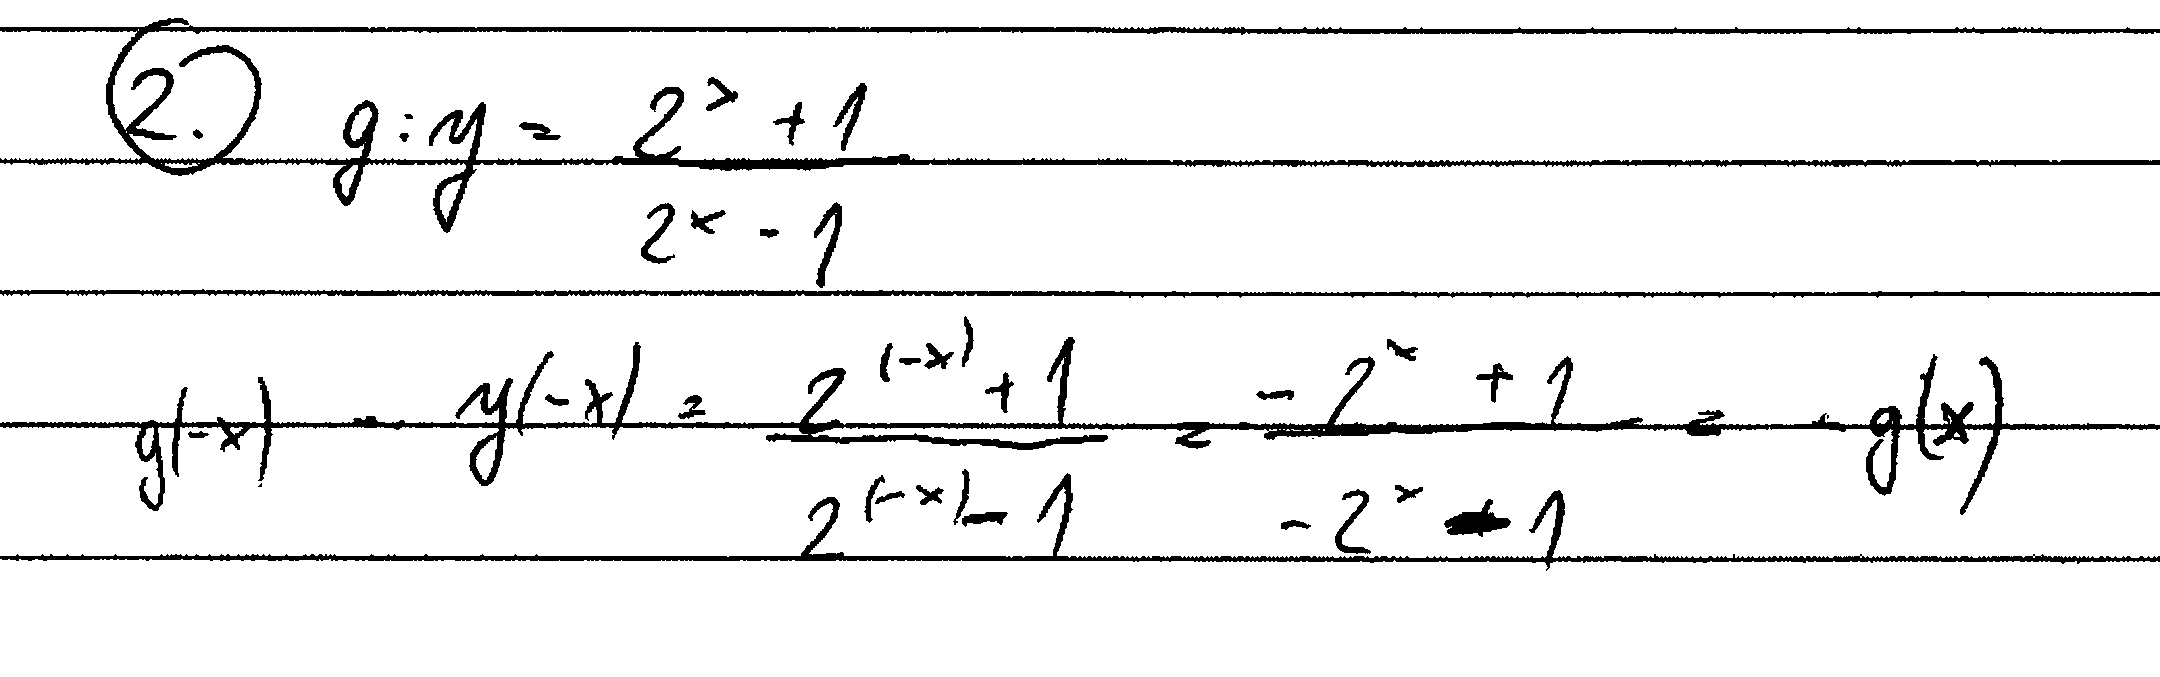 2. g: y = (2^x + 1) / (2^x - 1)
g(-x) = y(-x) = (2^(-x) + 1) / (2^(-x) - 1) = (-2^x + 1) / (-2^x - 1) = -g(x)